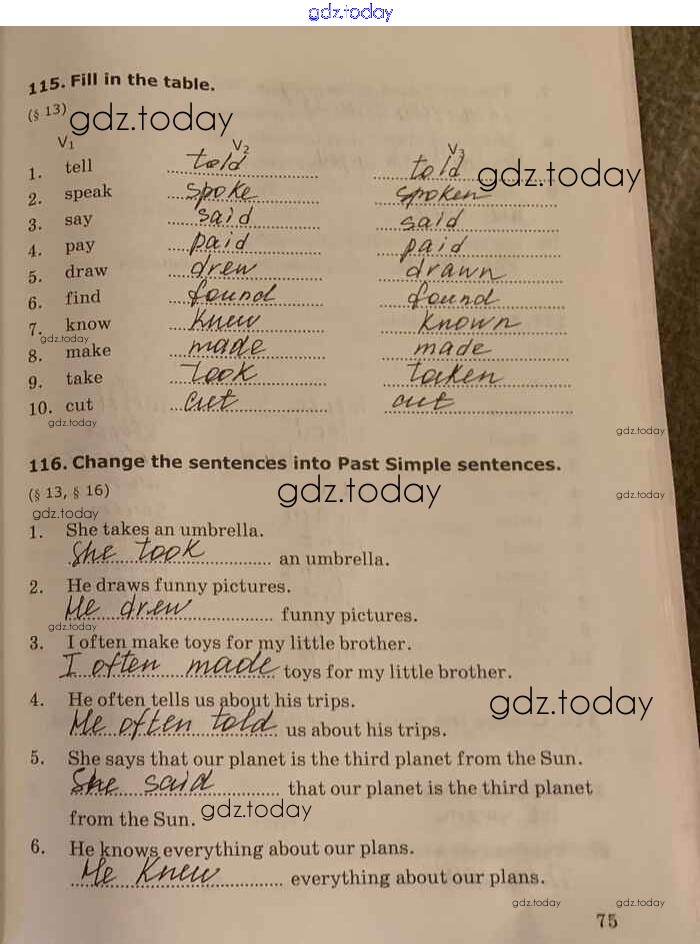 gdz.today
115. Fill in the table.
(§ 13) gdz.today
V₁ V₂ V₃
1. tell told told gdz.today
2. speak spoke spoken
3. say said said
4. pay paid paid
5. draw drew drawn
6. find found found
7. know knew known
gdz.today
8. make made made
9. take took taken
10. cut cut cut
gdz.today gdz.today
116. Change the sentences into Past Simple sentences.
(§ 13, § 16) gdz.today gdz.today
gdz.today
1. She takes an umbrella.
She took an umbrella.
2. He draws funny pictures.
He drew funny pictures.
gdz.today
3. I often make toys for my little brother.
I often made toys for my little brother.
4. He often tells us about his trips. gdz.today
He often told us about his trips.
5. She says that our planet is the third planet from the Sun.
She said that our planet is the third planet
from the Sun. gdz.today
6. He knows everything about our plans.
He knew everything about our plans.
gdz.today gdz.today
75